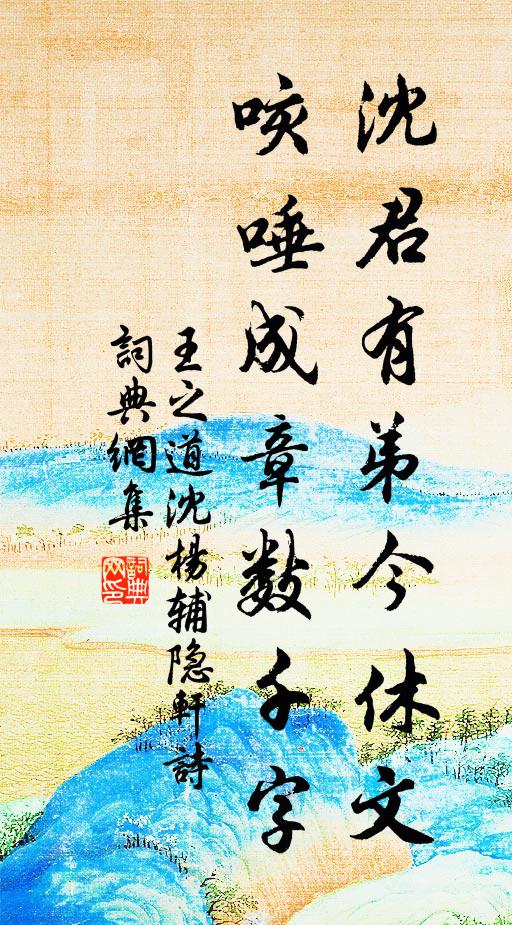 沈君有弟今休文
咳唾成章数千字
王之道沈楊辅隐軒詩
詞典網集
詞典网印